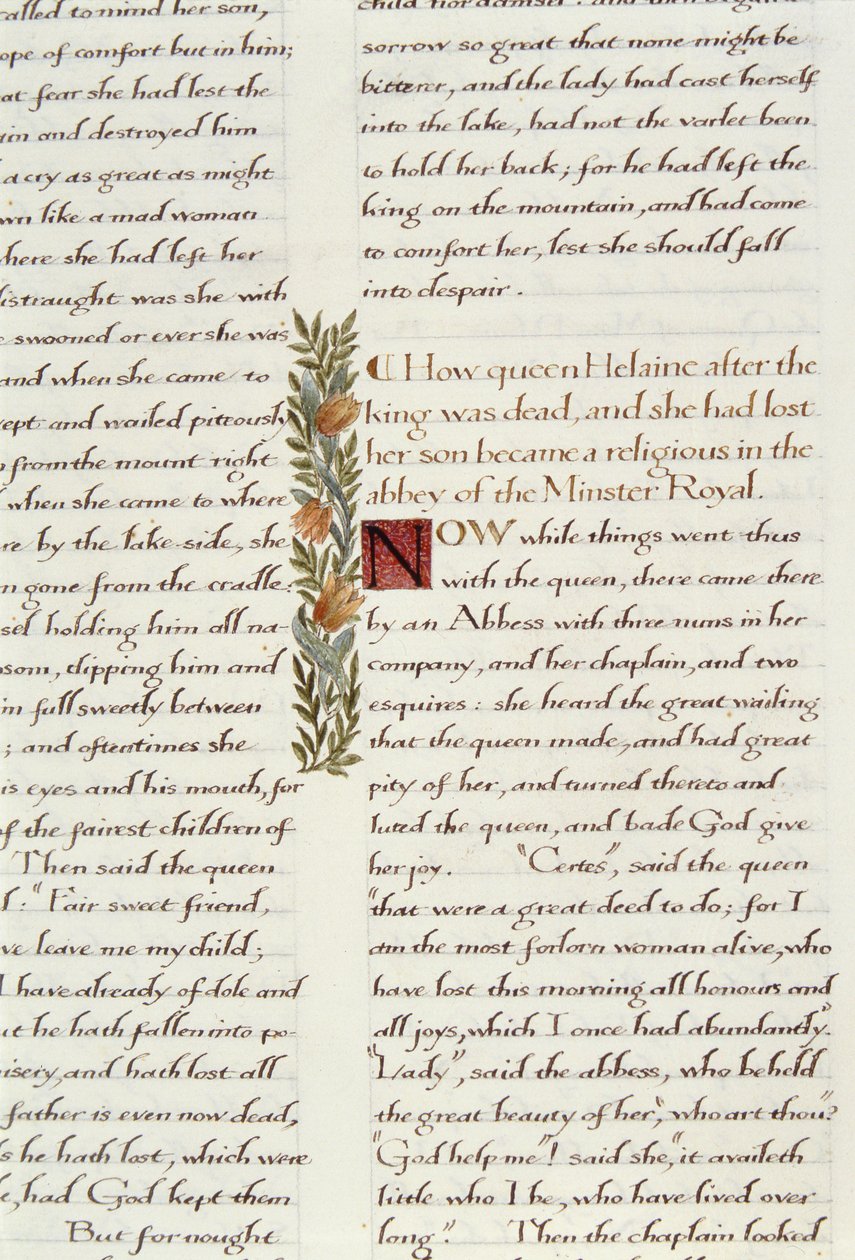 called to mind her son,
ope of comfort but in him;
at fear she had lest the
ain and destroyed him
a cry as great as might
wn like a mad woman
where she had left her
distraught was she with
e swooned or ever she was
and when she came to
wept and wailed piteously
from the mount right
when she came to where
re by the lake-side, she
n gone from the cradle:
sel holding him all na-
osom, clipping him and
im full sweetly between
; and oftentimes she
is eyes and his mouth, for
of the fairest children of
Then said the queen
l: "Fair sweet friend,
ve leave me my child;
I have already of dole and
ut he hath fallen into po-
misery, and hath lost all
father is even now dead,
s he hath lost, which were
e, had God kept them
But for nought
child nor damsel: and then began a
sorrow so great that none might be
bitterer, and the lady had cast herself
into the lake, had not the varlet been
to hold her back; for he had left the
king on the mountain, and had come
to comfort her, lest she should fall
into despair.
¶ How queen Helaine after the
king was dead, and she had lost
her son became a religious in the
abbey of the Minster Royal.
NOW while things went thus
with the queen, there came there
by an Abbess with three nuns in her
company, and her chaplain, and two
esquires: she heard the great wailing
that the queen made, and had great
pity of her, and turned thereto and
luted the queen, and bade God give
her joy. "Certes", said the queen
"that were a great deed to do; for I
am the most forlorn woman alive, who
have lost this morning all honours and
all joys, which I once had abundantly".
"Lady", said the abbess, who beheld
the great beauty of her, "who art thou"?
"God help me"! said she, "it availeth
little who I be, who have lived over
long". Then the chaplain looked